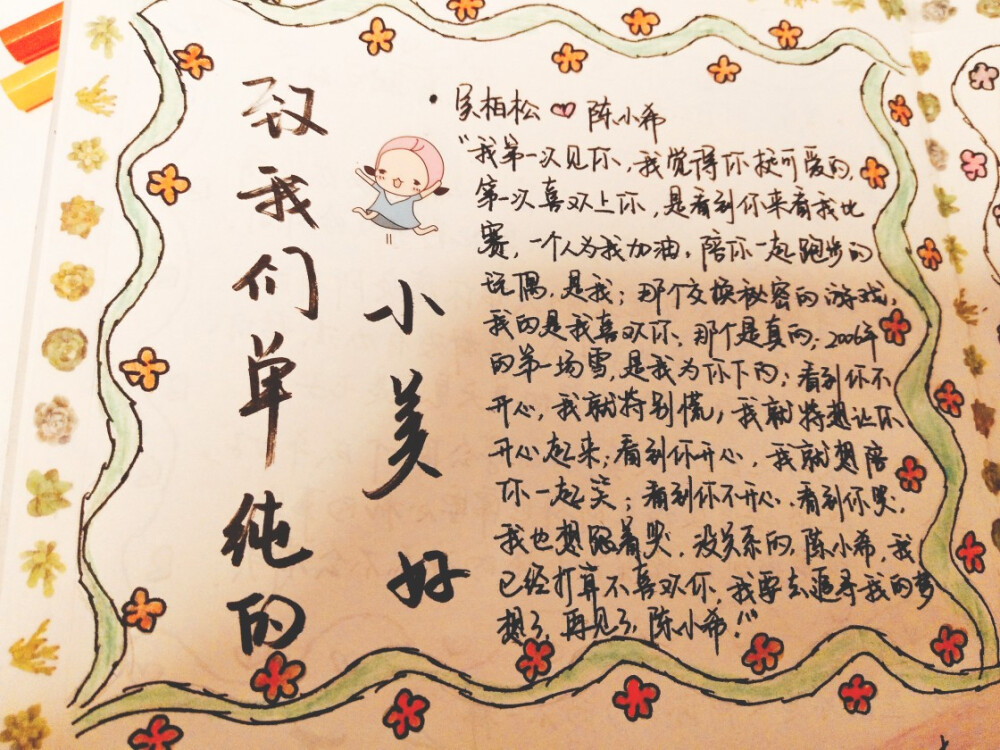 致我们单纯的
小美好
• 吴柏松 ♥ 陈小希
"我第一次见你,我觉得你挺可爱的,
第一次喜欢上你,是看到你来看我比
赛,一个人为我加油,陪你一起跑步的
玩偶,是我;那个交换秘密的游戏,
我的是我喜欢你,那个是真的;2006年
的第一场雪,是我为你下的;看到你不
开心,我就特别慌,我就特想让你
开心起来;看到你开心,我就想陪
你一起笑;看到你不开心,看到你哭,
我也想跟着哭,没关系的,陈小希,我
已经打算不喜欢你,我要去追寻我的梦
想了,再见了,陈小希!"